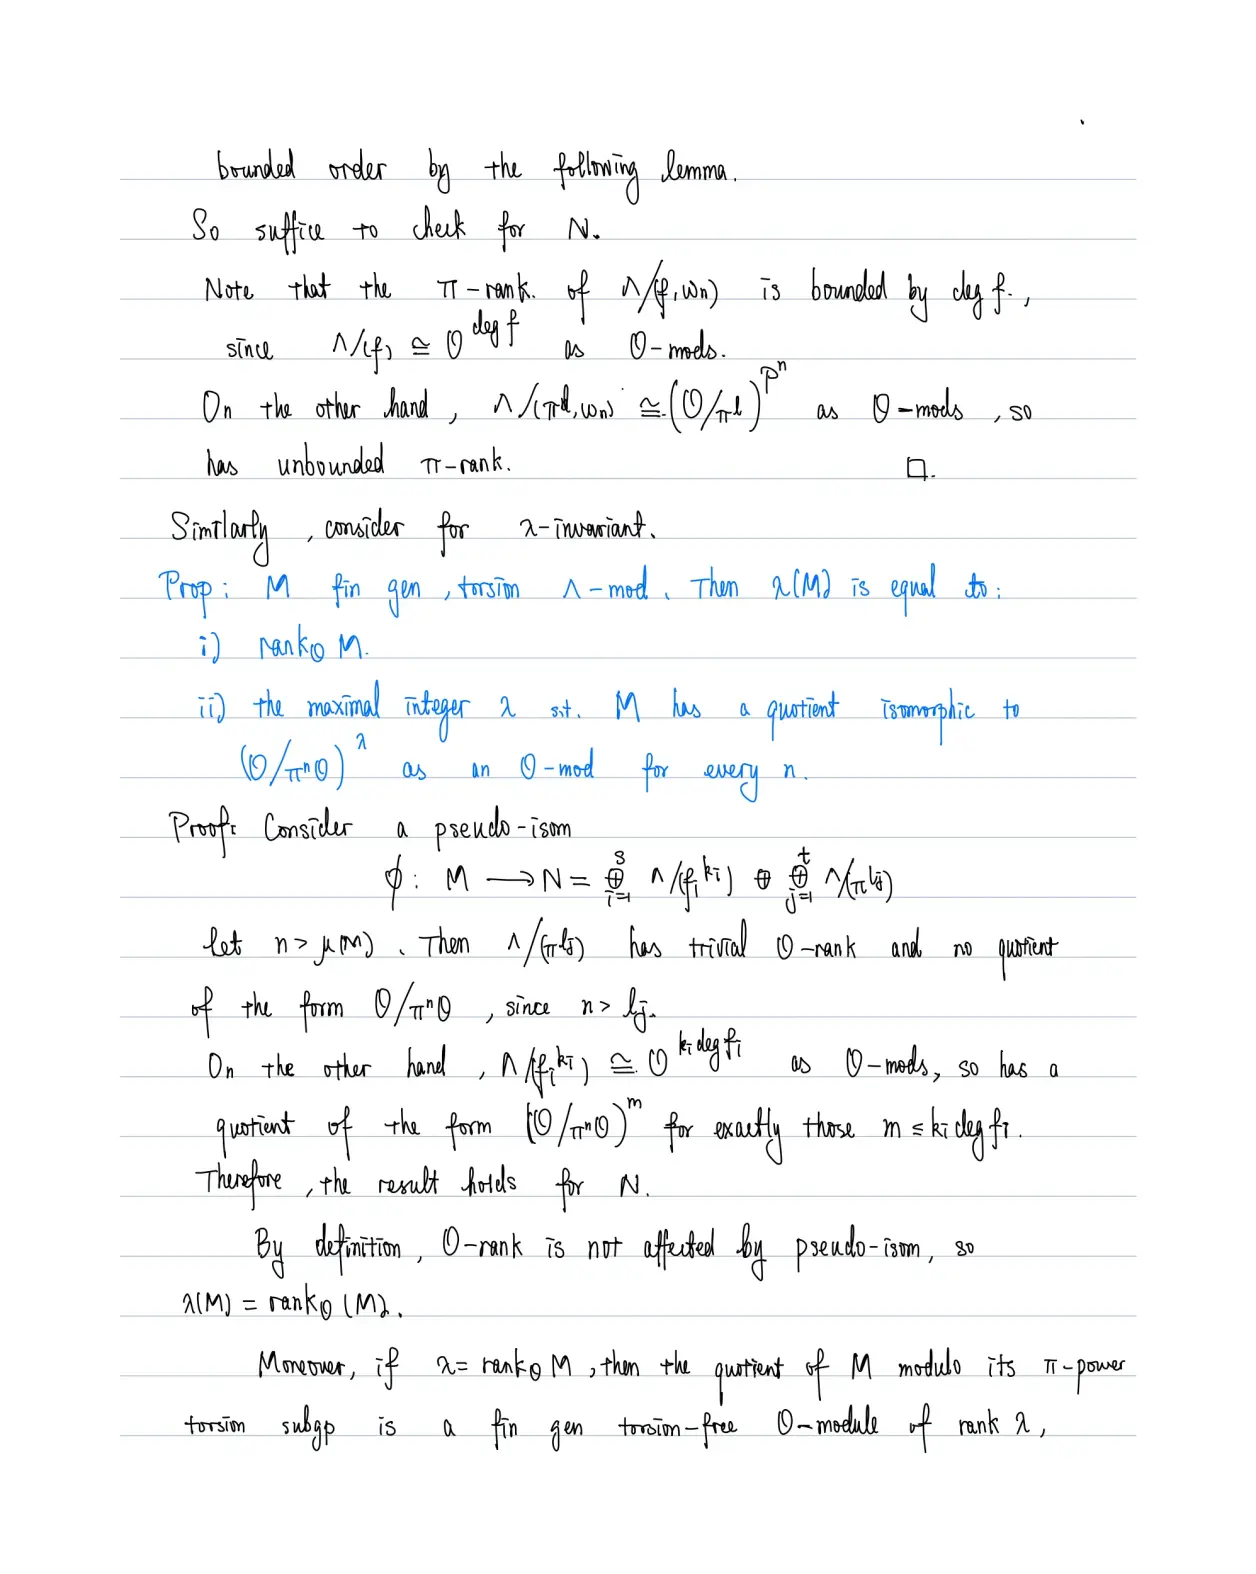 bounded order by the following lemma.
So suffice to check for N.
Note that the π-rank. of Λ/(f,ωn) is bounded by deg f.,
since Λ/(f) ≅ O^{deg f} as O-mods.
On the other hand, Λ/(π^l,ωn) ≅ (O/π^l)^{p^n} as O-mods, so
has unbounded π-rank. □.
Similarly, consider for λ-invariant.
Prop: M fin gen, torsion Λ-mod. Then λ(M) is equal to:
i) rank_O M.
ii) the maximal integer λ s.t. M has a quotient isomorphic to
(O/π^n O)^λ as an O-mod for every n.
Proof: Consider a pseudo-isom
ϕ: M ⟶ N = ⊕_{i=1}^{s} Λ/(f_i^{k_i}) ⊕ ⊕_{j=1}^{t} Λ/(π^{l_j})
let n > μ(M). Then Λ/(π^{l_j}) has trivial O-rank and no quotient
of the form O/π^n O, since n > l_j.
On the other hand, Λ/(f_i^{k_i}) ≅ O^{k_i deg f_i} as O-mods, so has a
quotient of the form (O/π^n O)^m for exactly those m ≤ k_i deg f_i.
Therefore, the result holds for N.
By definition, O-rank is not affected by pseudo-isom, so
λ(M) = rank_O (M).
Moreover, if λ = rank_O M, then the quotient of M modulo its π-power
torsion subgp is a fin gen torsion-free O-module of rank λ,